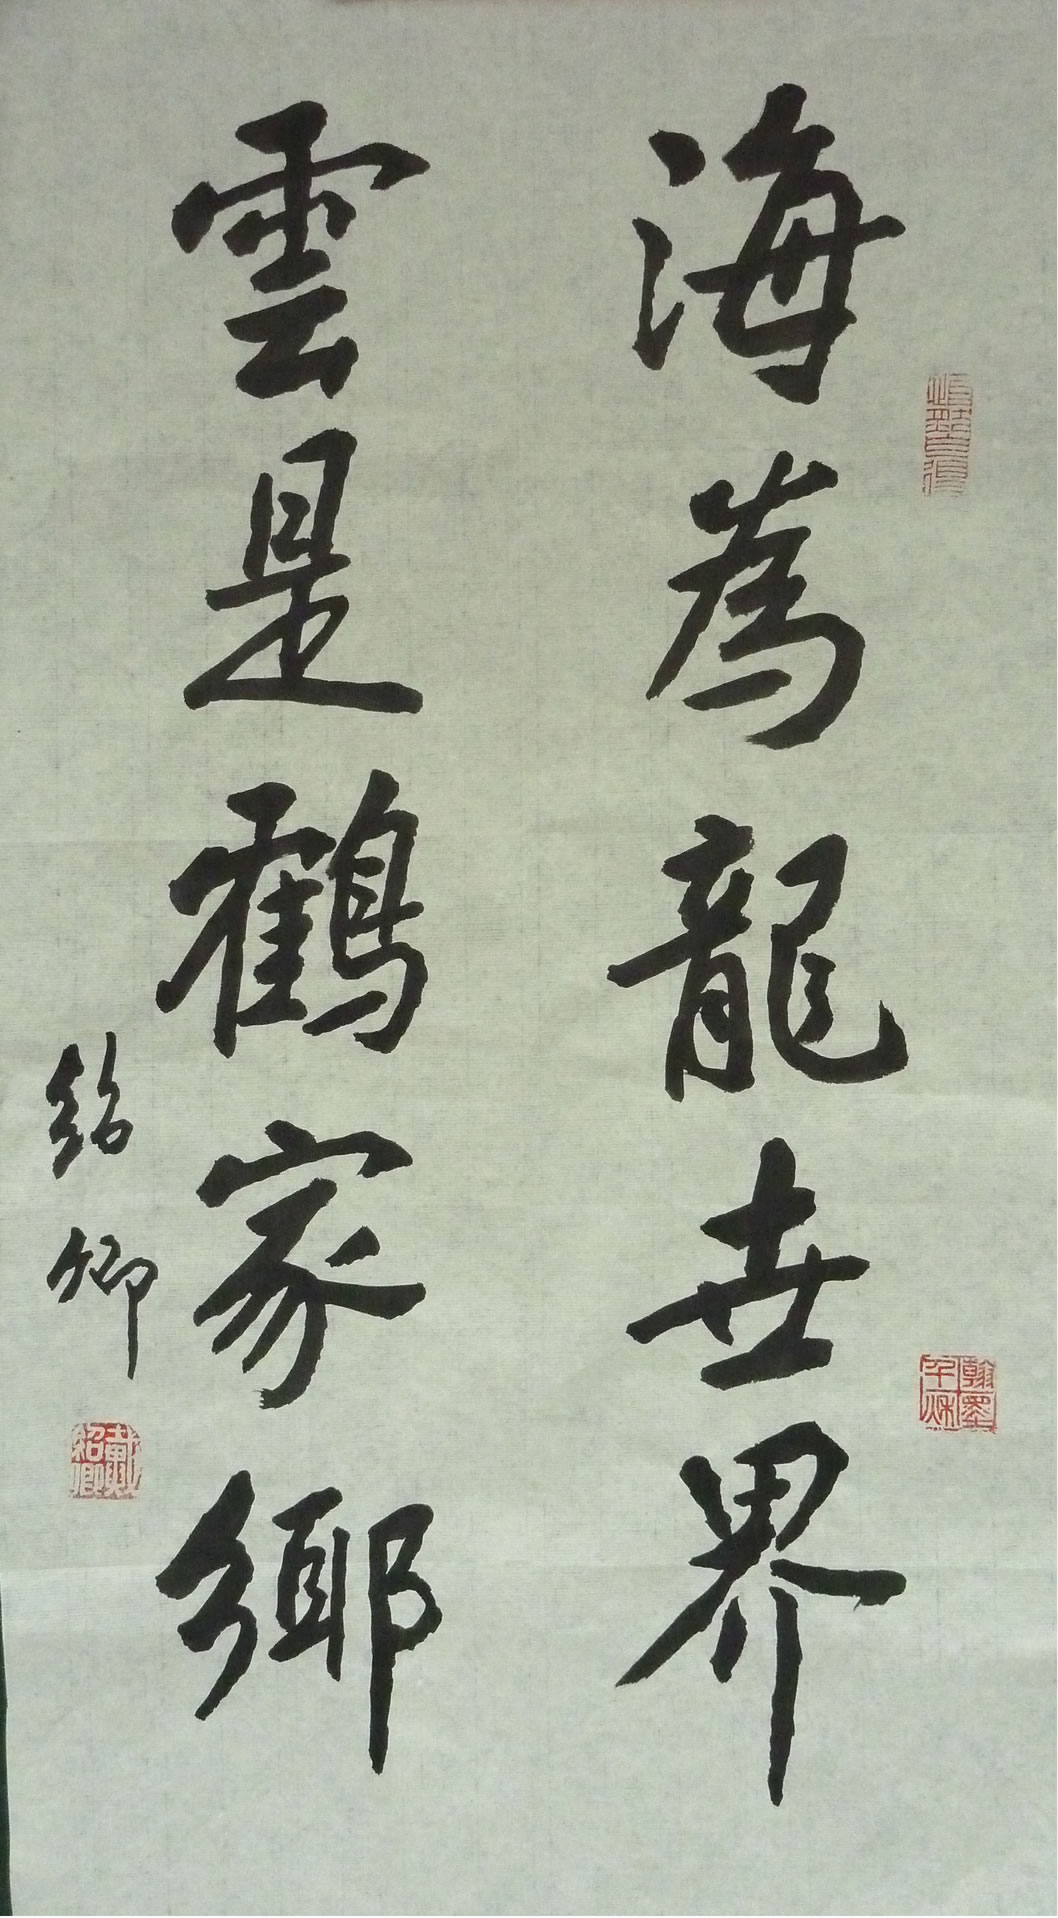 海為龍世界
雲是鶴家鄉
紹卿
翰墨千秋
戴紹卿